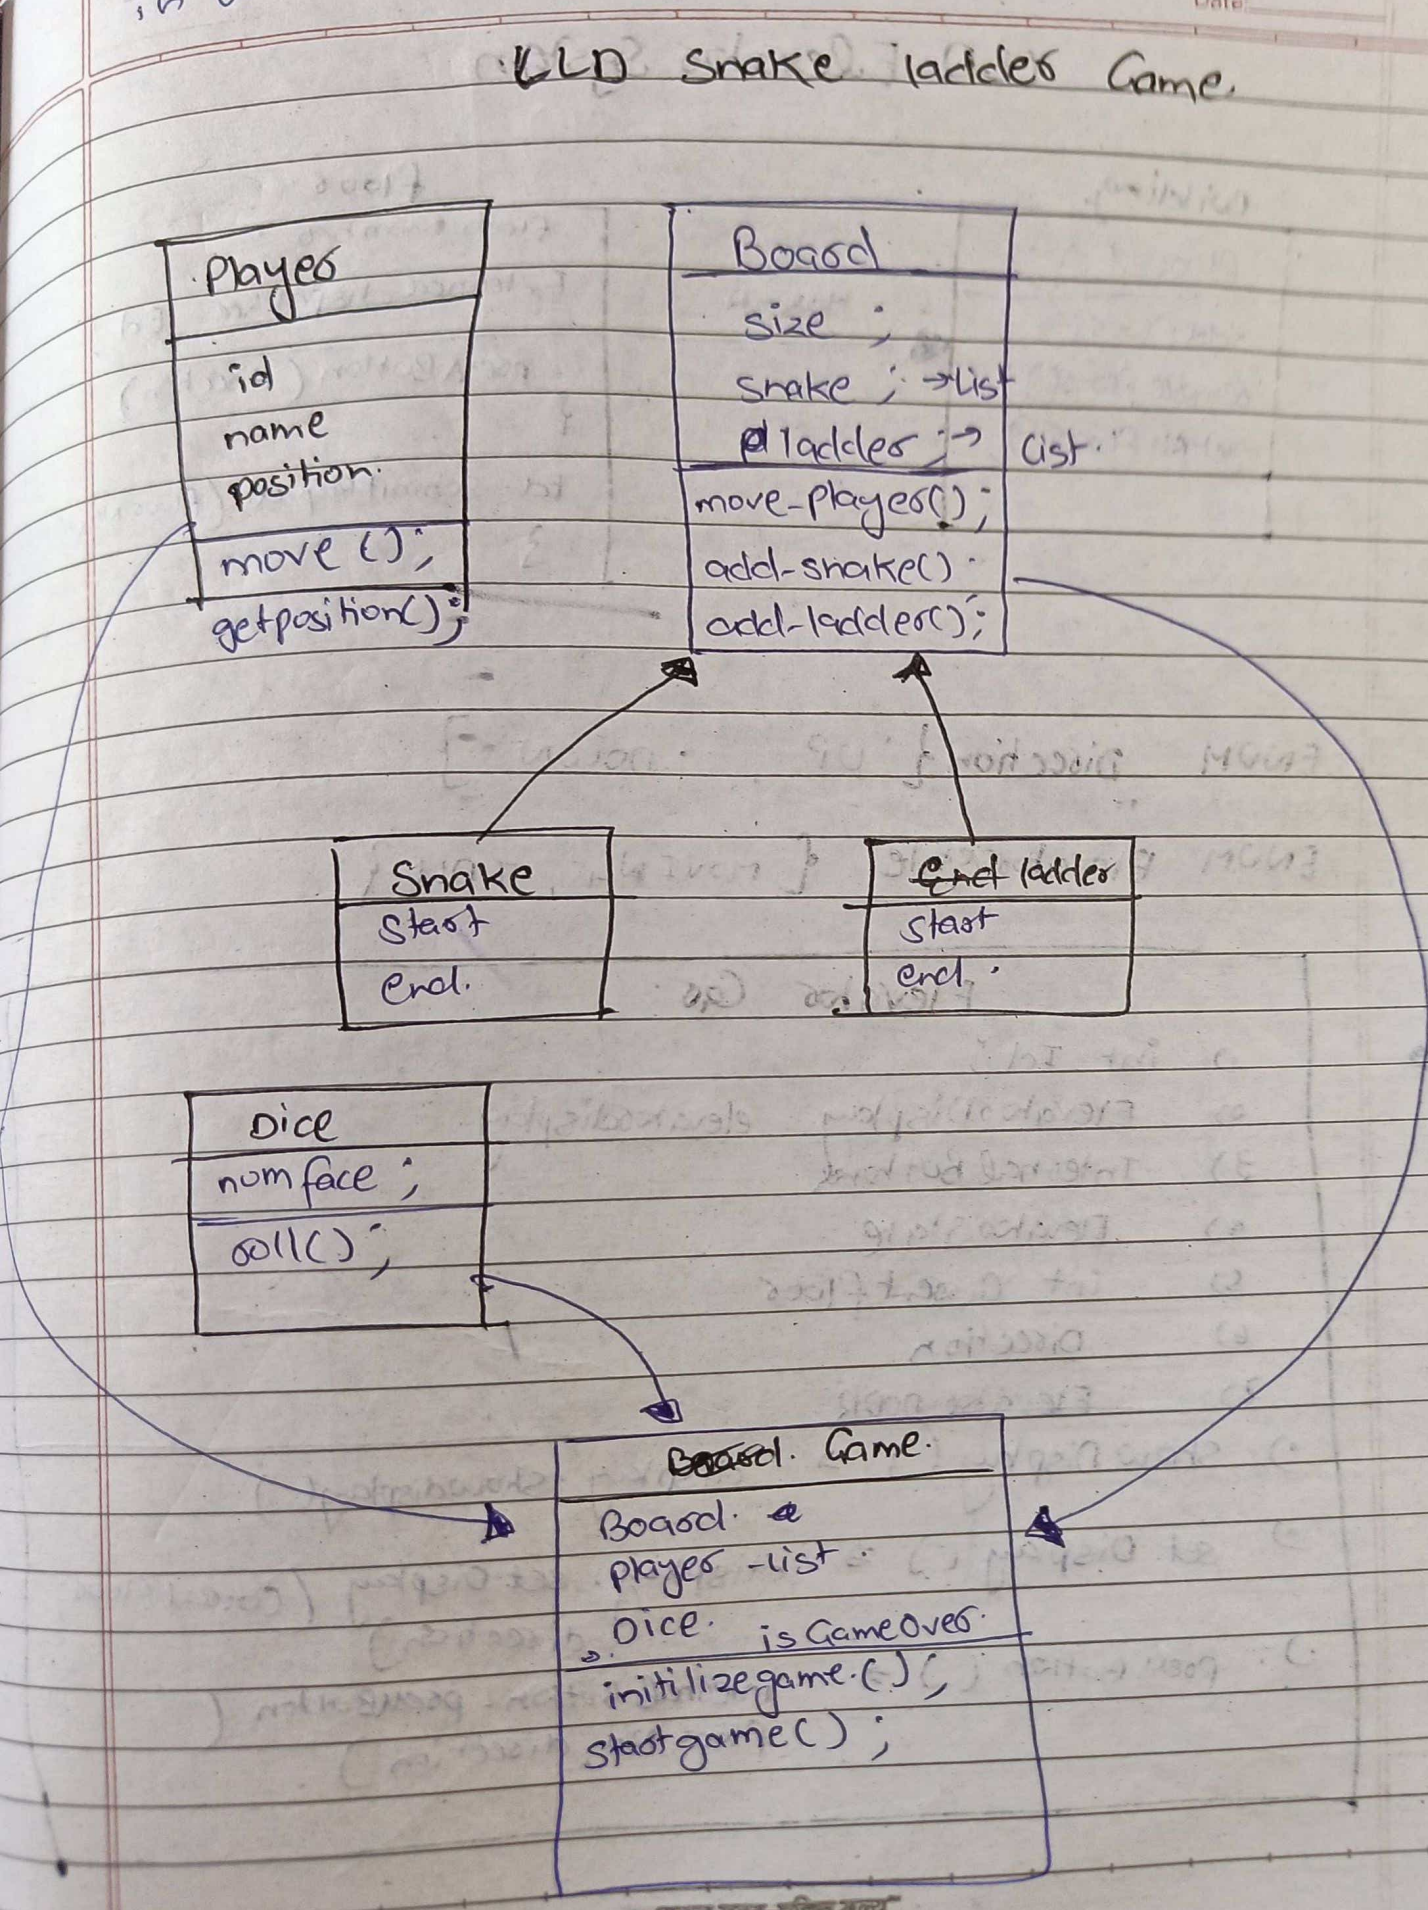 LLD Snake ladder Game.
Player
id
name
position.
move();
getposition();
Board
size ;
snake ; →List
ladder ; → List.
move-player();
add-snake()
add-ladder();
Snake
Start
end.
end ladder
Start
end.
Dice
numface ;
roll();
Board. Game.
Board.
player -list
Dice. isGameOver.
initilizegame.();
startgame();